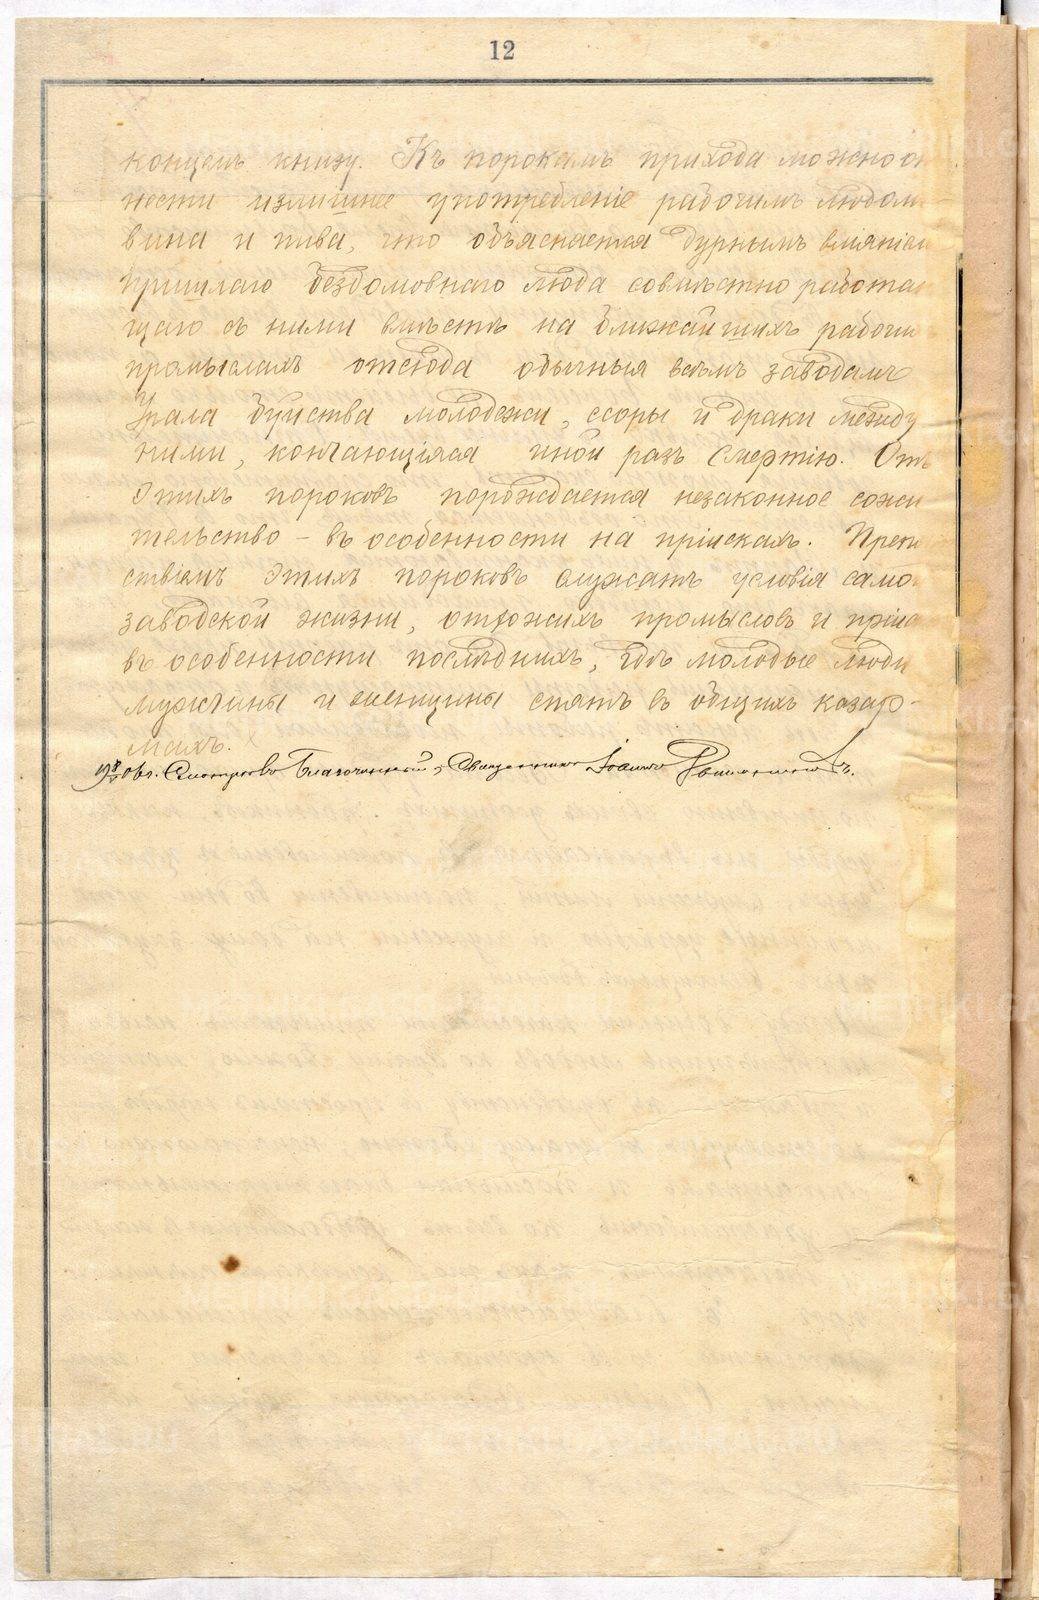 12
концемъ книзу. Къ порокамъ прихода можно от
нести излишнее употребленіе рабочимъ людом
вина и пива, что объясняется дурнымъ вліяніем
пришлаго бездомовнаго люда совмѣстно работаю
щаго съ ними вмѣстѣ на ближайшихъ рабочи
промыслахъ отсюда обычныя всѣмъ заводамъ
Урала буйства молодежи, ссоры и драки между
ними, кончающіяся иной разъ смертію. Отъ
этихъ пороковъ порождается незаконное сожи
тельство – въ особенности на пріискахъ. Препят
ствіемъ этихъ пороковъ служатъ условія само
заводской жизни, отхожихъ промысловъ и пріис
въ особенности послѣднихъ, гдѣ молодые люди
мужчины и женщины спятъ въ общихъ казар-
махъ.
Смотрѣлъ Благочинный, Священникъ Іоаннъ
METRIKI.GASO-URAL.RU